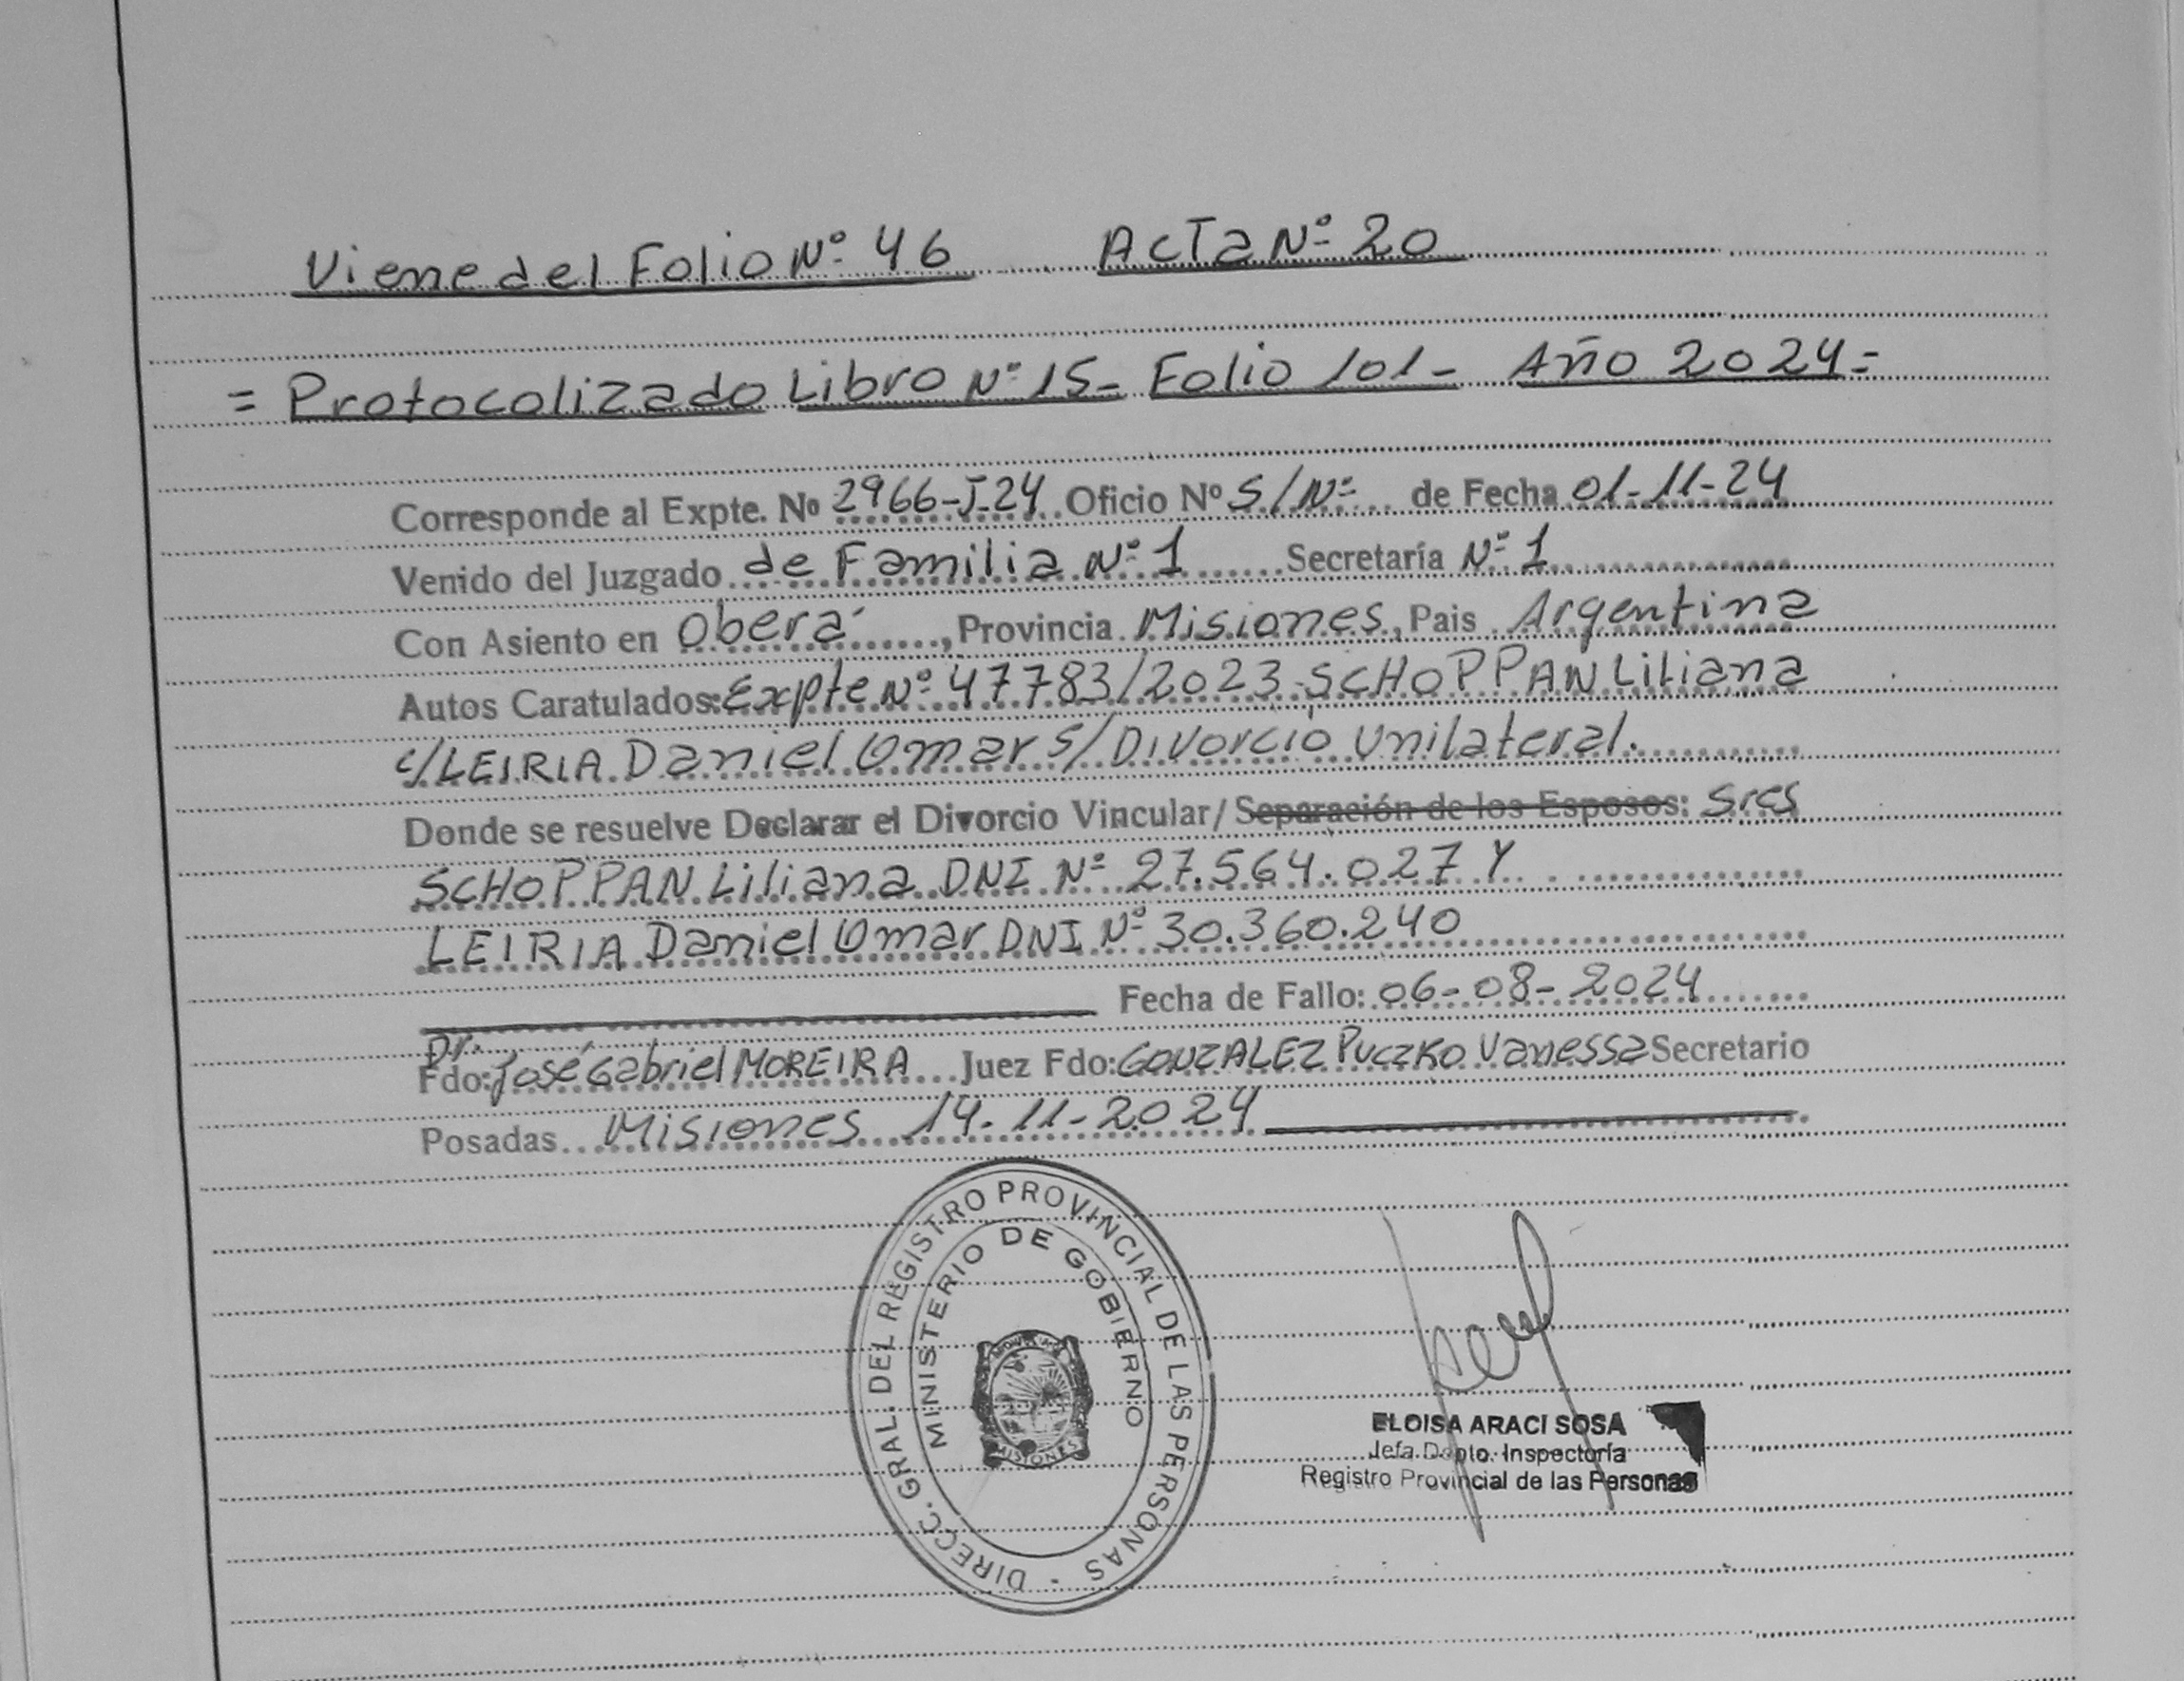 Viene del Folio Nº 46 Acta Nº 20
= Protocolizado Libro Nº 15- Folio 101- Año 2024=
Corresponde al Expte. Nº 2966-J-24 Oficio Nº S/Nº de Fecha 01-11-24
Venido del Juzgado de Familia Nº 1 Secretaría Nº 1
Con Asiento en Oberá, Provincia Misiones, Pais Argentina
Autos Caratulados: Expte Nº 47783/2023 SCHOPPAN Liliana
c/LEIRIA Daniel Omar S/Divorcio Unilateral.
Donde se resuelve Declarar el Divorcio Vincular/Separación de los Esposos: Sres
SCHOPPAN Liliana DNI Nº 27.564.027 Y
LEIRIA Daniel Omar DNI Nº 30.360.240
Fecha de Fallo: 06-08-2024
Dr.
Fdo: José Gabriel MOREIRA Juez Fdo: GONZALEZ PUCZKO Vanessa Secretario
Posadas Misiones 14-11-2024
DIRECC. GRAL. DEL REGISTRO PROVINCIAL DE LAS PERSONAS -
MINISTERIO DE GOBIERNO
MISIONES
ELOISA ARACI SOSA
Jefa Dpto. Inspectoría
Registro Provincial de las Personas